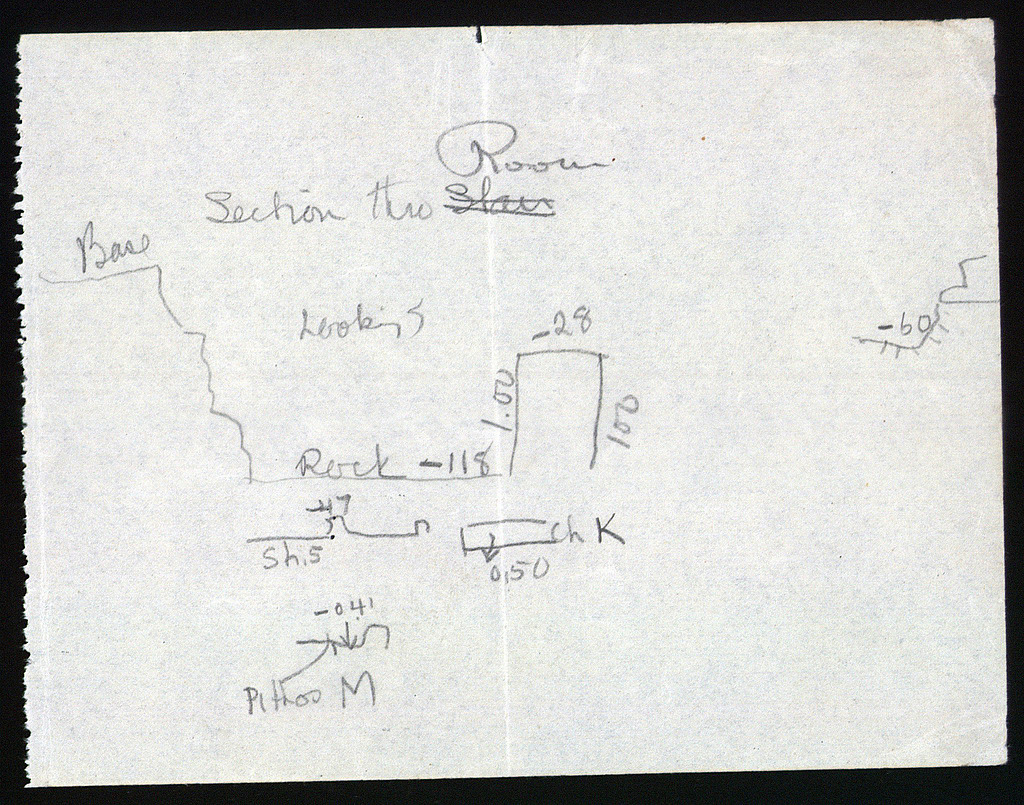 Room
Section thro Stair
Base
Looking S
-28
-60
1.00
100
Rock -118
-47
Sh.5
Ch K
0,50
-041
Pithos M